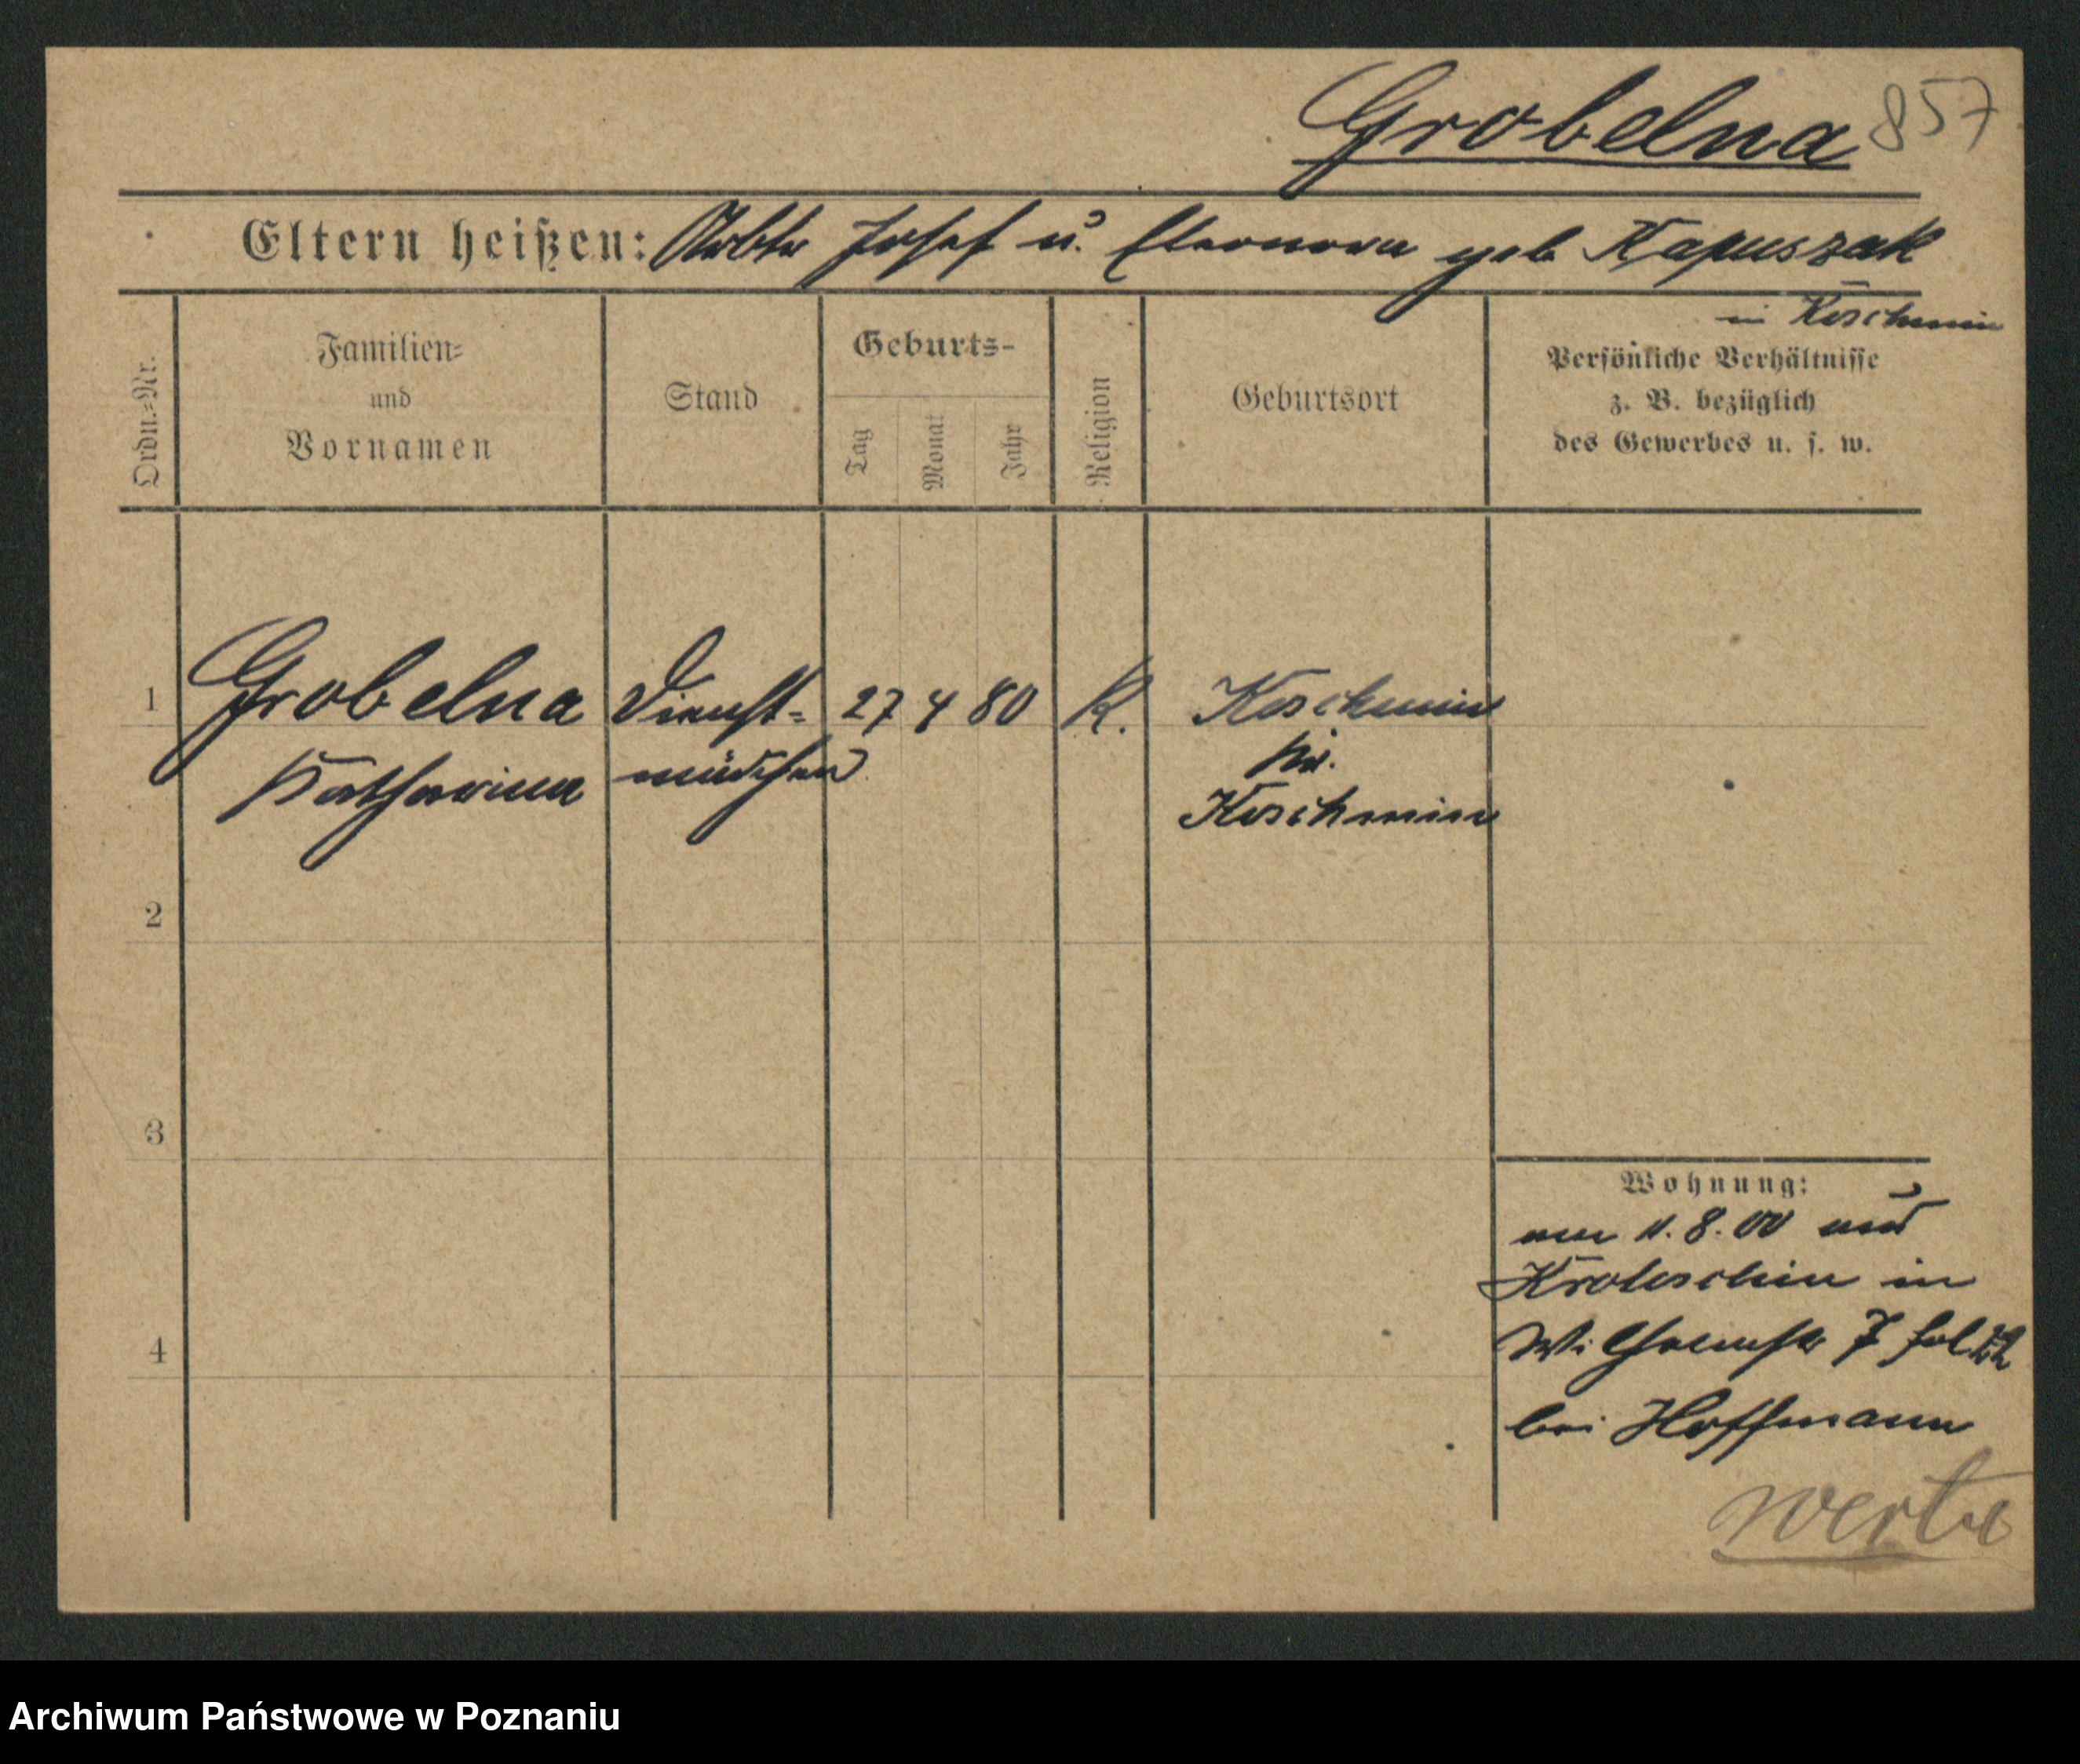 Grobelna 857
Eltern heißen: Arbtr Josef u. Eleonora geb Kapuszak
in Koschmin
Ordn.-Nr.
Familien-
und
Vornamen
Stand
Geburts-
Tag
Monat
Jahr
Religion
Geburtsort
Persönliche Verhältnisse
z. B. bezüglich
des Gewerbes u. s. w.
1 Grobelna Dienst- 27 4 80 K. Koschmin
Katharina mädchen Kr.
Koschmin
2
3
4
Wohnung:
11.8.00 aus
Krotoschin in
Wilhelmstr 7
bei Hoffmann
Archiwum Państwowe w Poznaniu